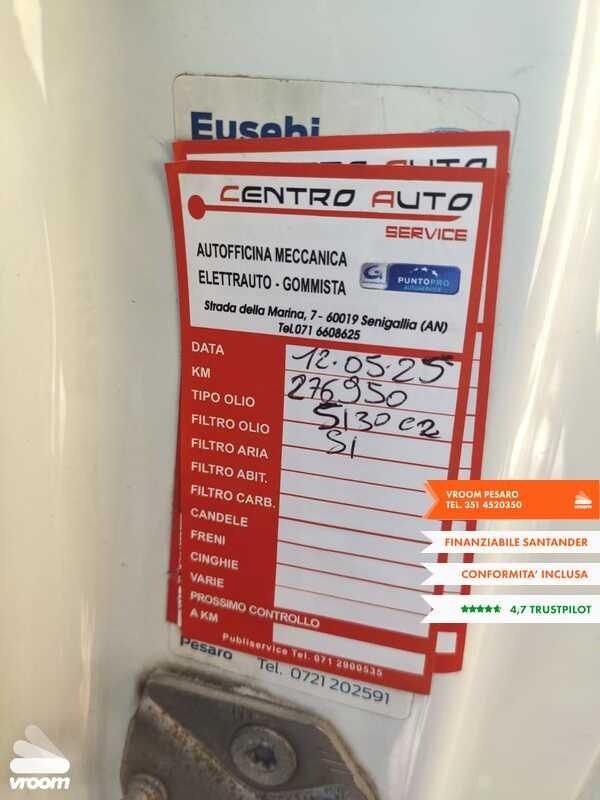 Eusebi
AUTO
CENTRO AUTO
SERVICE
AUTOFFICINA MECCANICA
ELETTRAUTO - GOMMISTA
PUNTOPRO
AUTOSERVICE
Strada della Marina, 7 - 60019 Senigallia (AN)
Tel.071 6608625
DATA 12.05.25
KM 276950
TIPO OLIO 5/30 C2
FILTRO OLIO SI
FILTRO ARIA
FILTRO ABIT.
FILTRO CARB.
CANDELE
FRENI
CINGHIE
VARIE
PROSSIMO CONTROLLO
A KM
Publiservice Tel. 071 2900535
Pesaro Tel. 0721 202591
VROOM PESARO
TEL. 351 4520350
vroom
FINANZIABILE SANTANDER
CONFORMITA' INCLUSA
4,7 TRUSTPILOT
vroom